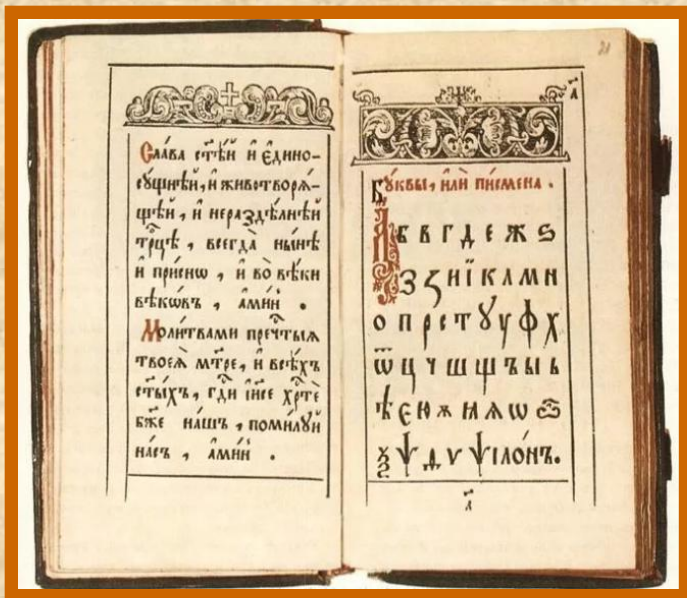 Сла́ва ст҃ѣ́й и҆ є҆дино-
сꙋ́щнѣй, и҆ животворѧ́-
щей, и҆ нераздѣ́лнѣй
трⷪ҇цѣ, всегда̀ ны́нѣ
и҆ при́снѡ, и҆ во вѣ́ки
вѣкѡ́въ, а҆ми́нь.
Моли́твами преч҇тыѧ
твоеѧ̀ мт҃ре, и҆ всѣ́хъ
ст҃ы́хъ, гдⷭ҇и і҆и҃се хрⷭ҇тѐ
бж҃е на́шъ, поми́лꙋй
на́съ, а҆ми́нь.
Бꙋ́квы, и҆лѝ пи́смена.
А Б В Г Д Е Ж Ѕ
З Ꙁ И Ї К Л М Н
О П Р С Т Ꙋ У Ф Х
Ѿ Ц Ч Ш Щ Ъ Ы Ь
Ѣ Є Ю Ѫ Ѧ Ѡ
Ѯ Ѱ Ѵ ѱїло́нъ.